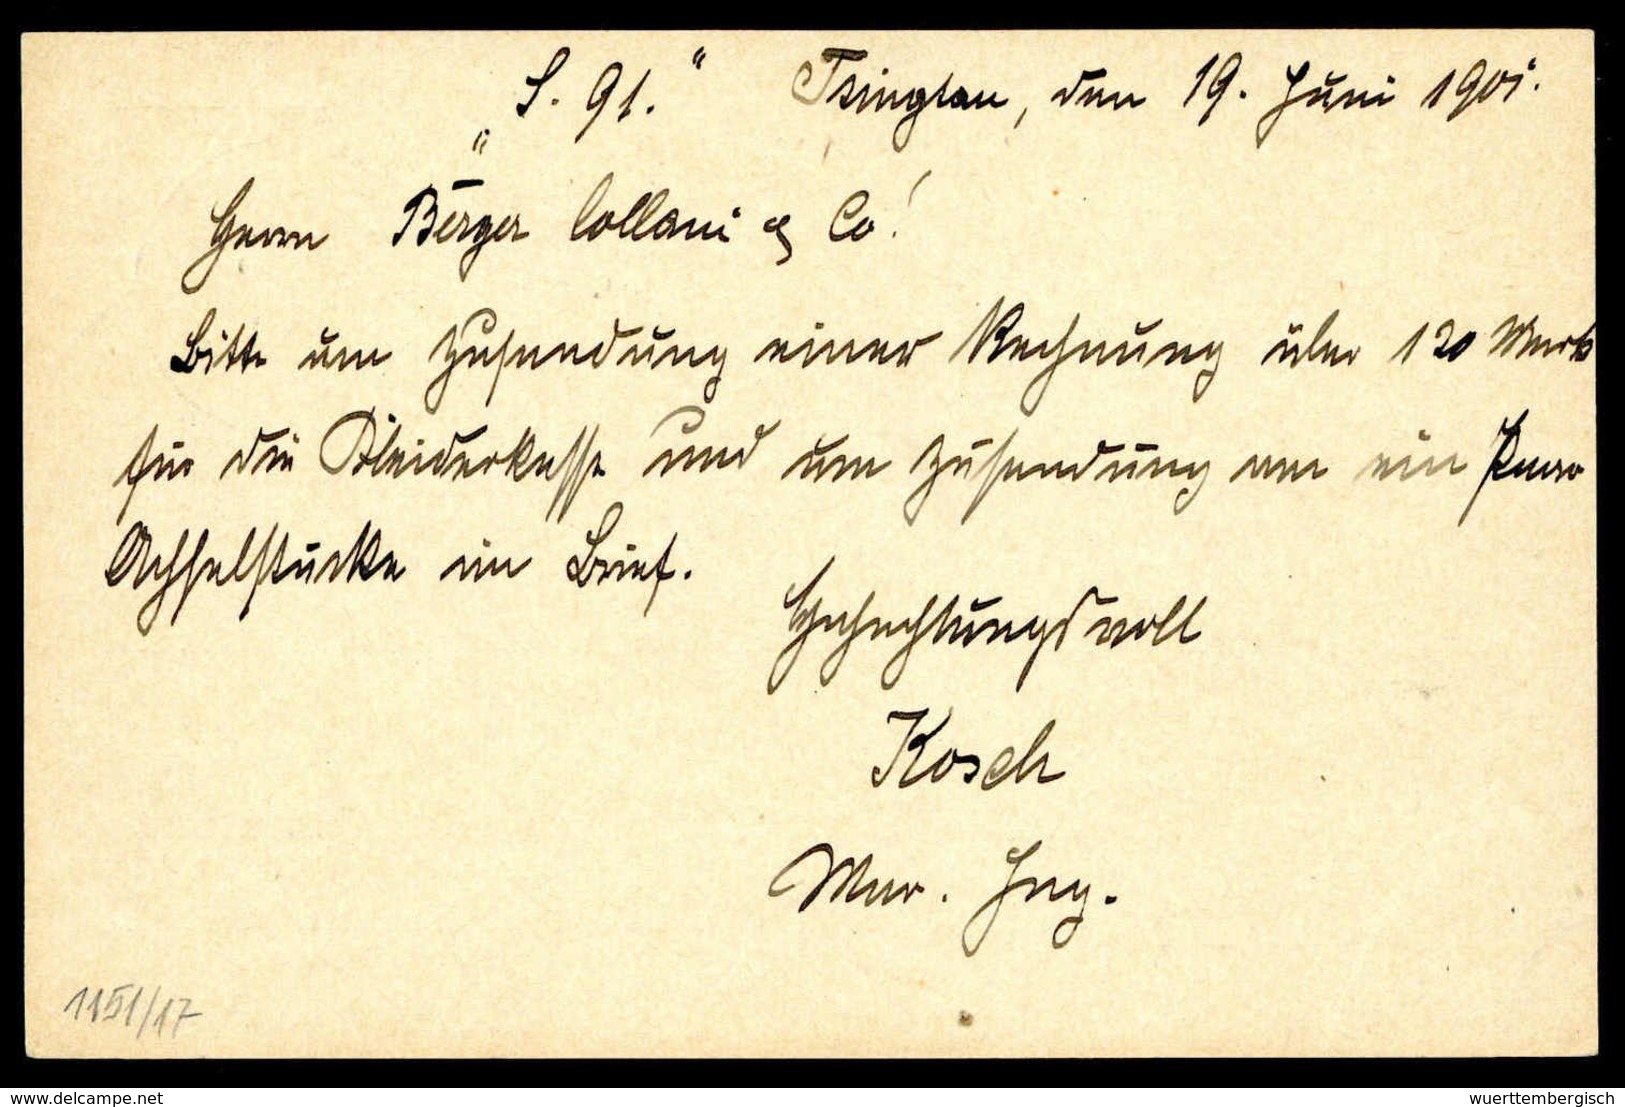 „S. 91.“ Tsingtau, den 19. Juni 1901.
Herrn Berger Collani & Co!
Bitte um Zusendung einer Rechnung über 120 Mark
für die Kleiderkasse und um Zusendung von ein Paar
Achselstücke im Brief.
Hochachtungsvoll
Kosch
Mar. Ing.
1151/17
www.delcampe.net
wuerttembergisch